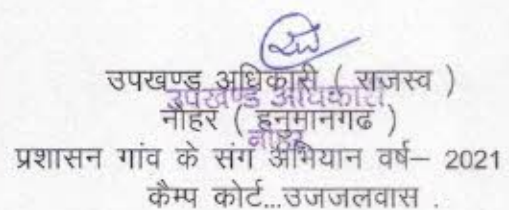 उपखण्ड अधिकारी ( राजस्व )
उपखण्ड अधिकारी
नौहर ( हनुमानगढ )
नोहर
प्रशासन गांव के संग अभियान वर्ष– 2021
कैम्प कोर्ट...उजजलवास .